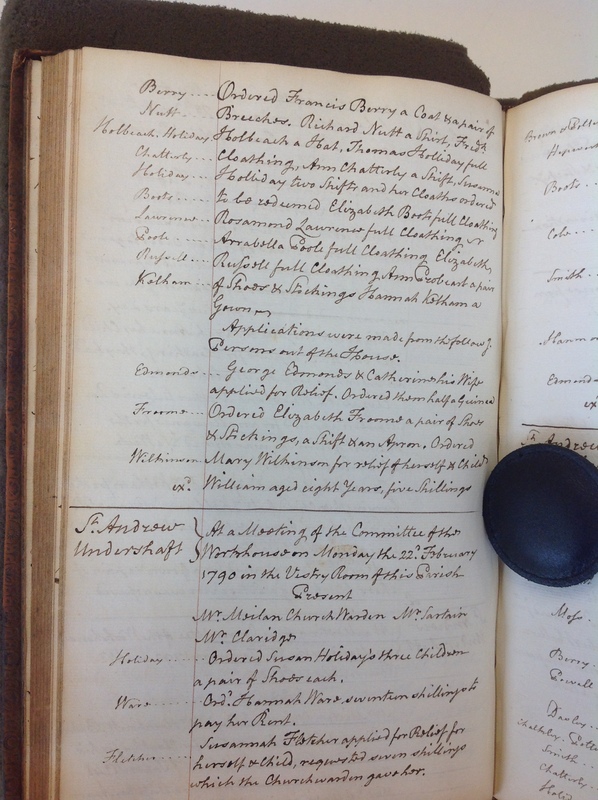 Berry .... Ordered Francis Berry a Coat & a pair of
Nutt .. Breeches. Richard Nutt a Shirt, Fredk
Holbeach, Holiday Holbeach a Hat, Thomas Holliday full
Chatterly ... Cloathing, Ann Chatterly a Shift, Susanna
Holiday .... Holliday two Shifts and her Cloaths ordered
Boots .... to be redeemed Elizabeth Boots full Cloathing
Lawrence ... Rosamond Lawrence full Cloathing,
Poole ...... Arrabella Poole full Cloathing Elizabeth
Russell ... Russell full Cloathing, Ann Probeart a pair
Kelham ..... of Shoes & Stockings Hannah Kelham a
Gown
Applications were made from the follow.g
Persons out of the House.
Edmonds ... George Edmonds & Catherine his Wife
applied for Relief. Ordered them half a Guinea
Froome ... Ordered Elizabeth Froome a pair of Shoes
& Stockings, a Shift & an Apron. Ordered
Wilkinson Mary Wilkinson for relief of herself & Child
exd. William aged eight Years, five Shillings
St. Andrew
Undershaft
At a Meeting of the Committee of the
Workhouse on Monday the 22d. February
1790 in the Vestry Room of this Parish
Present
Mr. Meilan Church Warden Mr. Sartain
Mr. Claridge
Holiday ...... Ordered Susan Holiday's three Children
a pair of Shoes each.
Ware ...... Ord.d Hannah Ware, seventeen shillings to
pay her Rent.
Susannah Fletcher applied for Relief for
Fletcher ..... herself & Child, requested seven shillings
which the Churchwarden gave her.
Boots ...
Cole ...
Smith ...
Edmonds
St. Andrew
Moss.
Berry.
Powell
Smith ...
Chatterly.